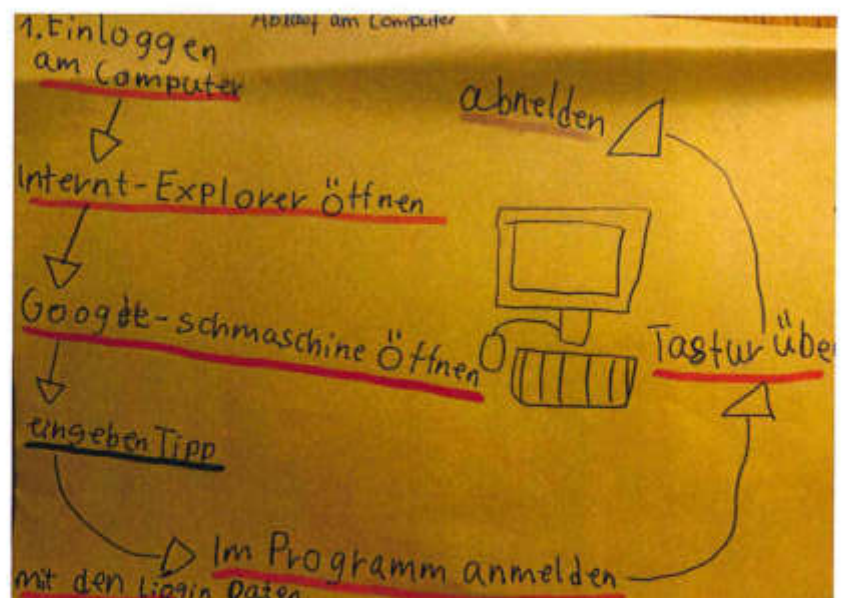 Ablauf am Computer
1. Einloggen
am Computer
Internt-Explorer Öffnen
Google-schmaschine Öffnen
eingeben Tipp
Im Programm anmelden
mit den Liogin Daten
Tastur übe
abnelden